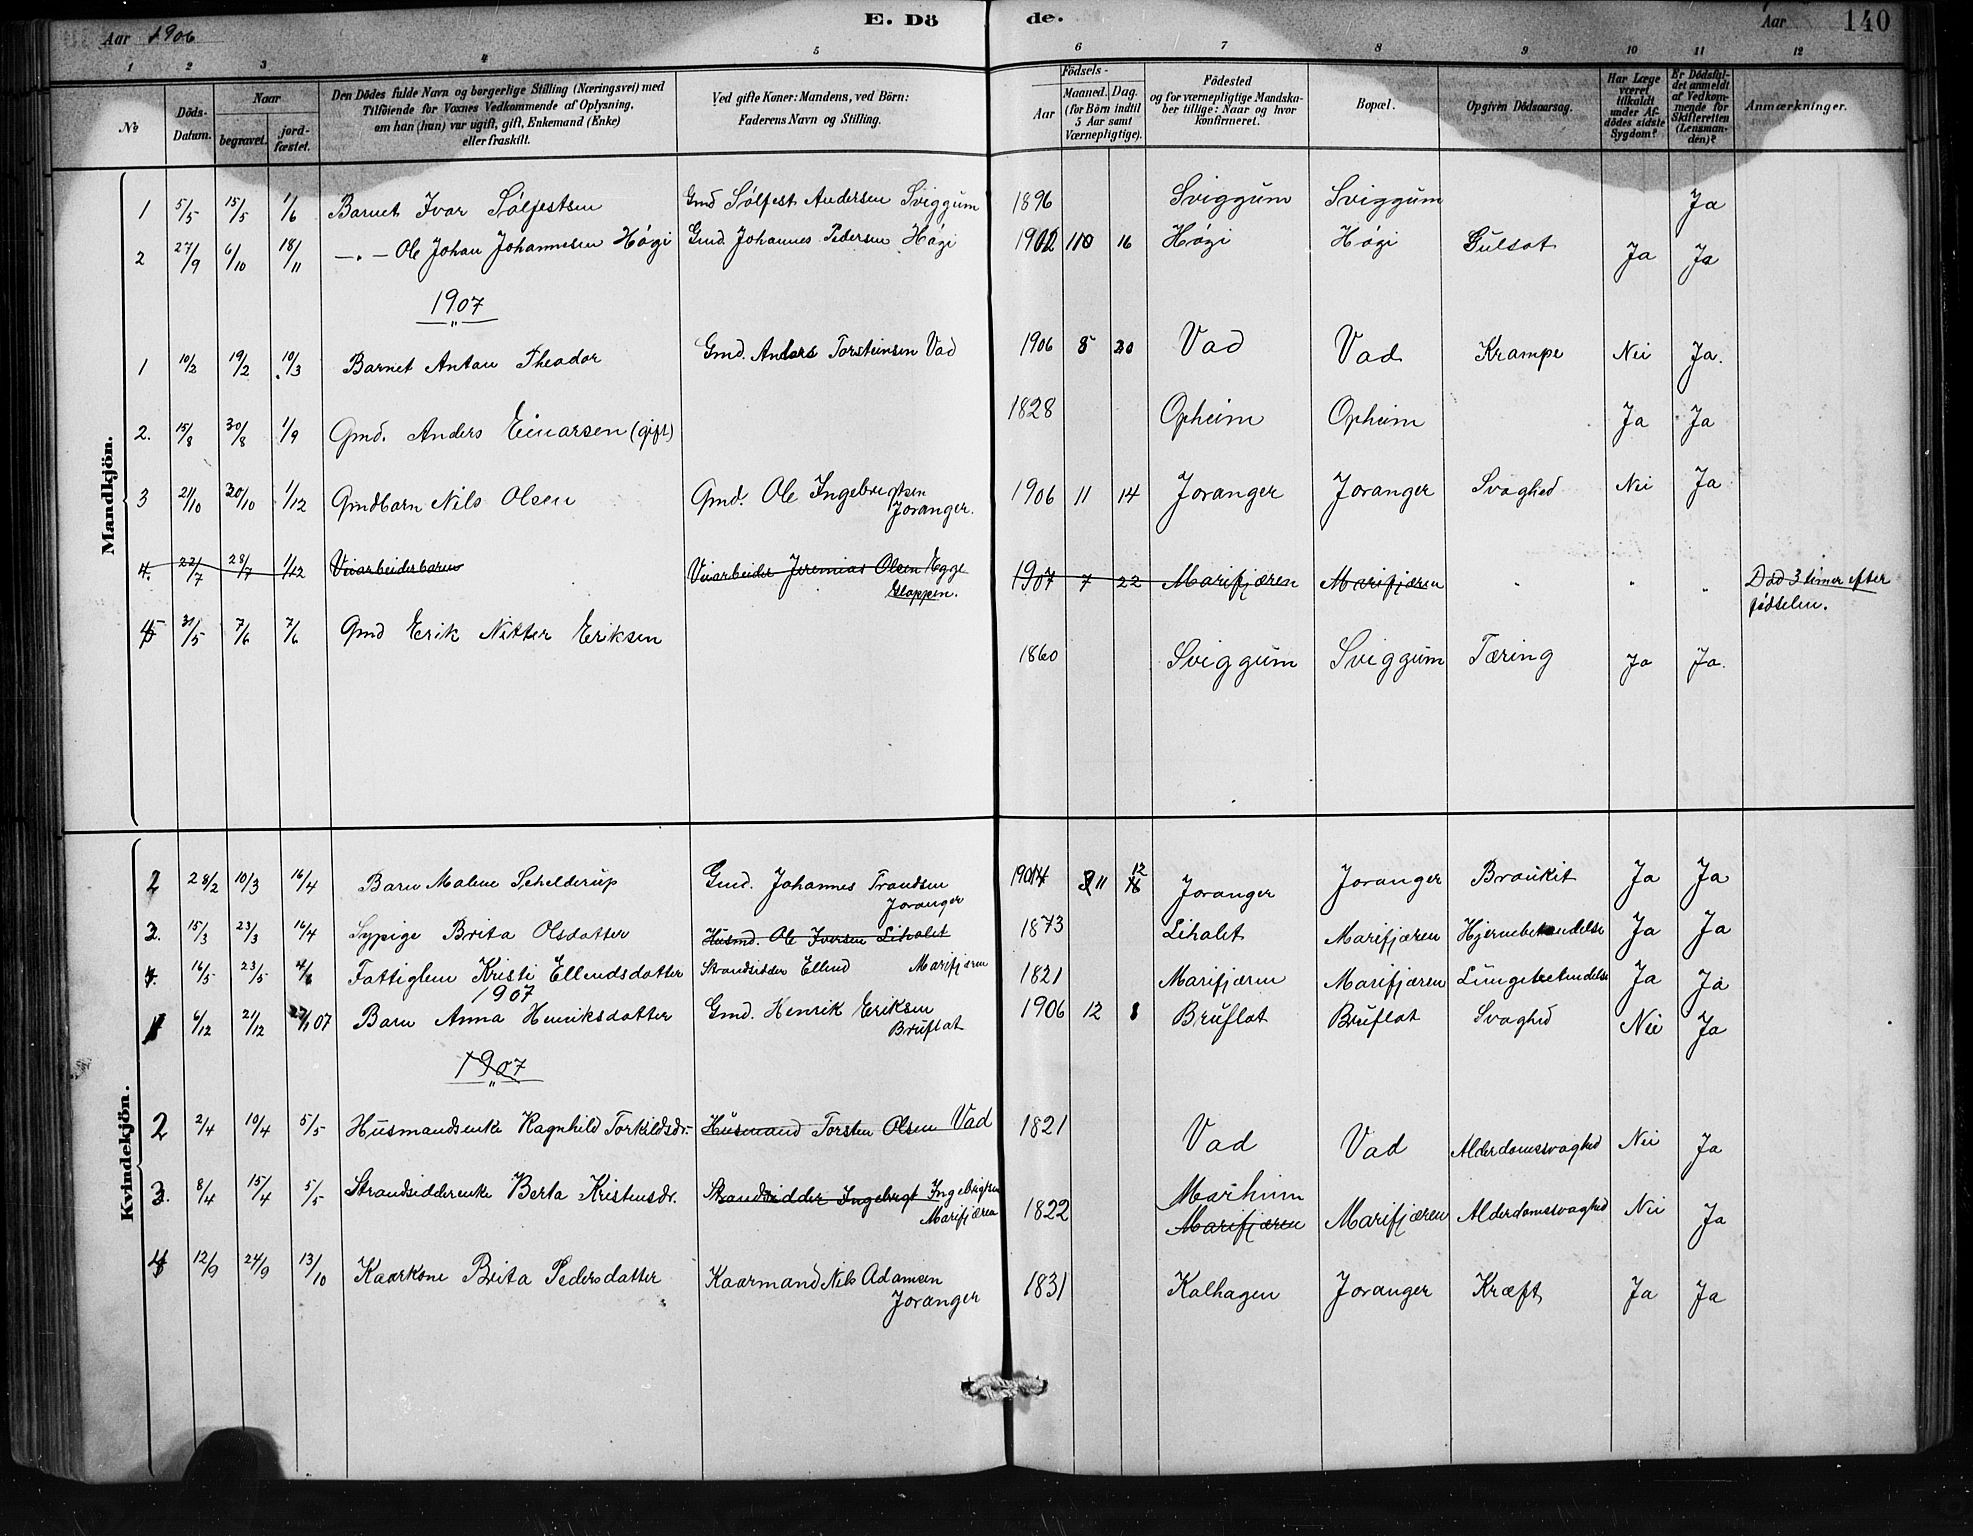 Aar 1906
E. Dö
de.
Aar
140
1 2 3 4 5 6 7 8 9 10 11 12
No
Döds-Datum.
Naar
begravet.
jord-fæstet.
Den Dödes fulde Navn og borgerlige Stilling (Næringsvei) med
Tilföiende for Voxnes Vedkommende af Oplysning,
om han (hun) var ugift, gift, Enkemand (Enke)
eller fraskilt.
Ved gifte Koner: Mandens, ved Börn:
Faderens Navn og Stilling.
Födsels-
Aar
Maaned. Dag.
(for Börn indtil
5 Aar samt
Værnepligtige).
Födested
og for værnepligtige Mandska-
ber tillige: Naar og hvor
konfirmeret.
Bopæl.
Opgiven Dödsaarsag.
Har Læge
været
tilkaldt
under Af-
dödes sidste
Sygdom?
Er Dödsfal-
det anmeldt
af Vedkom-
mende for
Skifteretten
(Lensman-
den)?
Anmærkninger.
Mandkjön.
1 5/5 15/5 1/6 Barnet Ivar Sølfestsen Gmd Sølfest Andersen Sviggum 1896 Sviggum Sviggum Ja
2 27/9 6/10 18/11 —"— Ole Johan Johannesen Høgi Gmd. Johannes Pedersen Høgi 1902 10 16 Høgi Høgi Gulsot Ja Ja
1907
1 10/2 19/2 10/3 Barnet Anton Theodor Gmd. Anders Torsteinsen Vad 1906 8 20 Vad Vad Krampe Nei Ja.
2. 15/8 30/8 1/9 Gmd. Anders Einarsen (gift) 1828 Opheim Opheim Ja Ja
3 21/10 30/10 1/12 Gmdbarn Nils Olsen Gmd. Ole Ingebrigtsen
Joranger. 1906 11 14 Joranger Joranger Svaghed Nei Ja
4. 22/7 28/7 1/12 Veiarbeiderbarn Veiarbeider Jeremias Olsen Egge
Gloppen. 1907 7 22 Marifjæren Marifjæren " " " Død 3 timer efter
fødselen.
5 31/5 7/6 7/6 Gmd Erik Nitter Eriksen
1860 Sviggum Sviggum Tæring Ja Ja.
Kvindekjön.
2 28/2 10/3 16/4 Barn Malene Schelderup Gmd. Johannes Trondsen
Joranger 1904 11 12 Joranger Joranger Bronkit Ja Ja
3. 15/3 23/3 16/4 Sypige Brita Olsdatter Husmd. Ole Iversen Lihalet 1873 Lihalet Marifjæren Hjernebetendelse Ja Ja
4. 16/5 23/5 4/6 Fattiglem Kristi Ellendsdatter Strandsidder Ellend Marifjæren 1821 Marifjæren Marifjæren Lungebetendelse Ja Ja
1907
1 6/12 21/12 07 Barn Anna Henriksdatter Gmd. Henrik Eriksen
Bruflat 1906 12 8 Bruflat Bruflat Svaghed Nei Ja
1907
2 2/4 10/4 5/5 Husmandsenke Ragnhild Torkildsdr. Husmand Torsten Olsen Vad 1821 Vad Vad Alderdomssvaghed Nei Ja
3. 8/4 15/4 5/5 Strandsidderenke Berta Kristensdr. Strandsidder Ingebrigt Ingebrigtsen
Marifjæren 1822 Marheim
Marifjæren Marifjæren Alderdomssvaghed Nei Ja
4 12/9 24/9 13/10 Kaarkone Brita Pedersdatter Kaarmand Nils Adamsen
Joranger 1831 Kalhagen Joranger Kræft Ja Ja